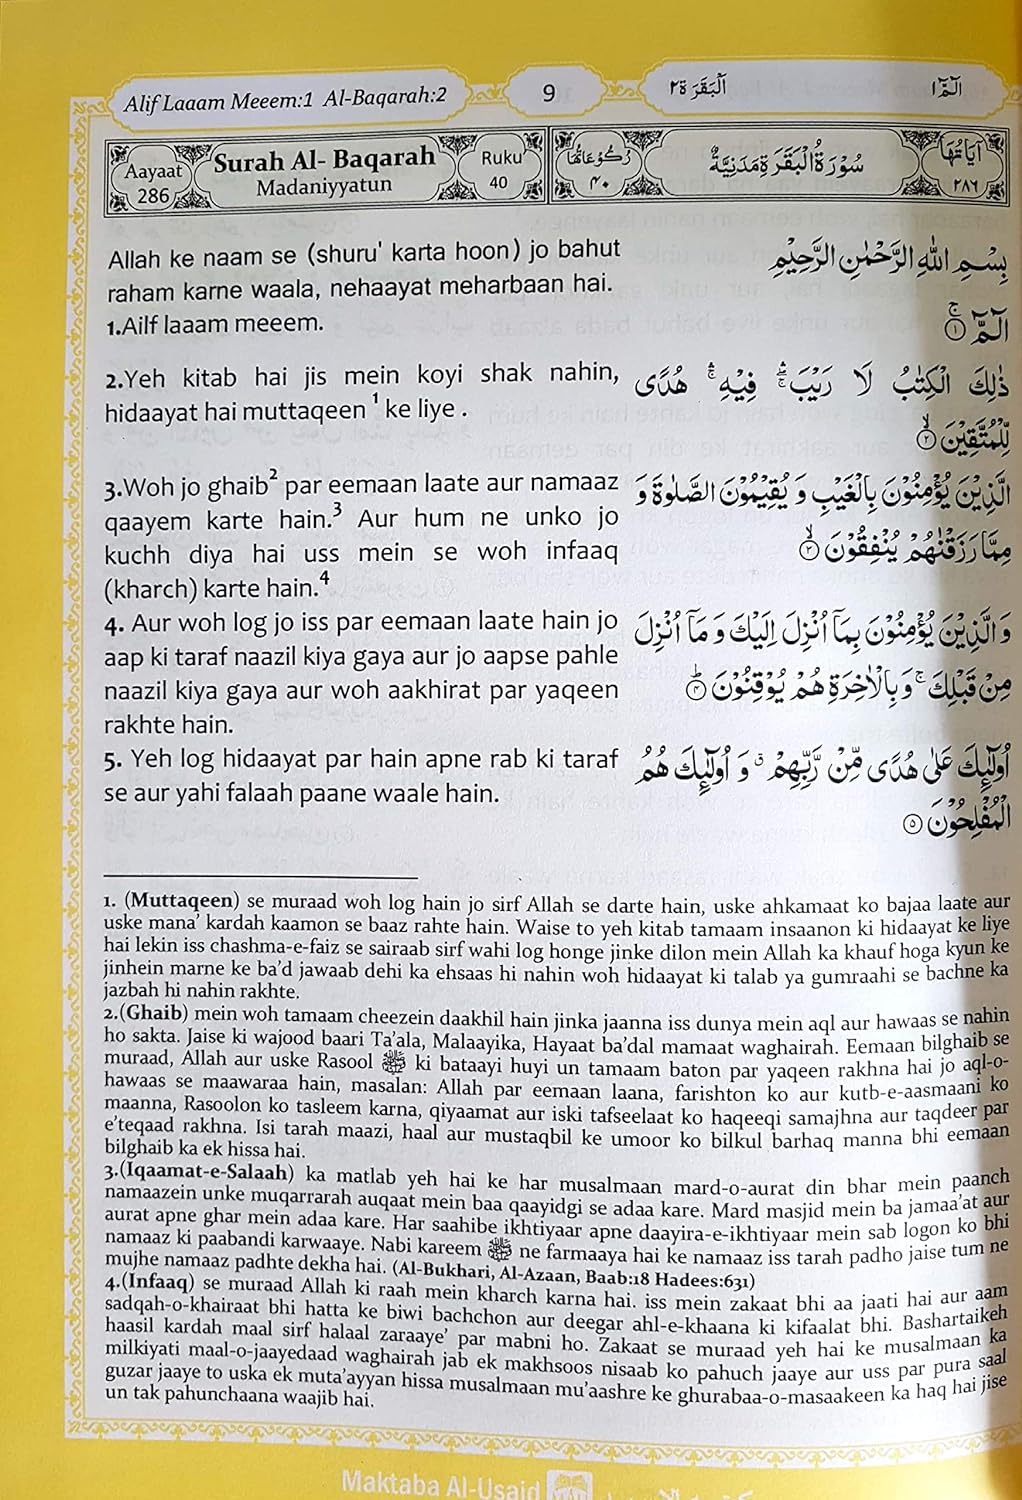 Alif Laaam Meeem:1 Al-Baqarah:2
9
اَلْبَقَرَة٢
الٓمّٓ١
Aayaat
286
Surah Al- Baqarah
Madaniyyatun
Ruku'
40
رُكُوْعَاتُهَا
٤٠
سُوْرَةُ الْبَقَرَةِ مَدَنِيَّةٌ
اٰيَاتُهَا
٢٨٦
Allah ke naam se (shuru' karta hoon) jo bahut
raham karne waala, nehaayat meharbaan hai.
1.Ailf laaam meeem.
بِسْمِ اللّٰهِ الرَّحْمٰنِ الرَّحِيْمِ
الٓمّٓ ۚ ١
2.Yeh kitab hai jis mein koyi shak nahin,
hidaayat hai muttaqeen ¹ ke liye .
ذٰلِكَ الْكِتٰبُ لَا رَيْبَ ۛ فِيْهِ ۛ هُدًى
لِّلْمُتَّقِيْنَ ۙ ٢
3.Woh jo ghaib² par eemaan laate aur namaaz
qaayem karte hain.³ Aur hum ne unko jo
kuchh diya hai uss mein se woh infaaq
(kharch) karte hain.⁴
الَّذِيْنَ يُؤْمِنُوْنَ بِالْغَيْبِ وَ يُقِيْمُوْنَ الصَّلٰوةَ وَ
مِمَّا رَزَقْنٰهُمْ يُنْفِقُوْنَ ۙ ٣
4. Aur woh log jo iss par eemaan laate hain jo
aap ki taraf naazil kiya gaya aur jo aapse pahle
naazil kiya gaya aur woh aakhirat par yaqeen
rakhte hain.
وَ الَّذِيْنَ يُؤْمِنُوْنَ بِمَاۤ اُنْزِلَ اِلَيْكَ وَ مَاۤ اُنْزِلَ
مِنْ قَبْلِكَ ۚ وَ بِالْاٰخِرَةِ هُمْ يُوْقِنُوْنَ ؕ ٤
5. Yeh log hidaayat par hain apne rab ki taraf
se aur yahi falaah paane waale hain.
اُولٰٓئِكَ عَلٰى هُدًى مِّنْ رَّبِّهِمْ ۗ وَ اُولٰٓئِكَ هُمُ
الْمُفْلِحُوْنَ ٥
1. (Muttaqeen) se muraad woh log hain jo sirf Allah se darte hain, uske ahkamaat ko bajaa laate aur
uske mana' kardah kaamon se baaz rahte hain. Waise to yeh kitab tamaam insaanon ki hidaayat ke liye
hai lekin iss chashma-e-faiz se sairaab sirf wahi log honge jinke dilon mein Allah ka khauf hoga kyun ke
jinhein marne ke ba'd jawaab dehi ka ehsaas hi nahin woh hidaayat ki talab ya gumraahi se bachne ka
jazbah hi nahin rakhte.
2.(Ghaib) mein woh tamaam cheezein daakhil hain jinka jaanna iss dunya mein aql aur hawaas se nahin
ho sakta. Jaise ki wajood baari Ta'ala, Malaayika, Hayaat ba'dal mamaat waghairah. Eemaan bilghaib se
muraad, Allah aur uske Rasool ﷺ ki bataayi huyi un tamaam baton par yaqeen rakhna hai jo aql-o-
hawaas se maawaraa hain, masalan: Allah par eemaan laana, farishton ko aur kutb-e-aasmaani ko
maanna, Rasoolon ko tasleem karna, qiyaamat aur iski tafseelaat ko haqeeqi samajhna aur taqdeer par
e'teqaad rakhna. Isi tarah maazi, haal aur mustaqbil ke umoor ko bilkul barhaq manna bhi eemaan
bilghaib ka ek hissa hai.
3.(Iqaamat-e-Salaah) ka matlab yeh hai ke har musalmaan mard-o-aurat din bhar mein paanch
namaazein unke muqarrarah auqaat mein baa qaayidgi se adaa kare. Mard masjid mein ba jamaa'at aur
aurat apne ghar mein adaa kare. Har saahibe ikhtiyaar apne daayira-e-ikhtiyaar mein sab logon ko bhi
namaaz ki paabandi karwaaye. Nabi kareem ﷺ ne farmaaya hai ke namaaz iss tarah padho jaise tum ne
mujhe namaaz padhte dekha hai. (Al-Bukhari, Al-Azaan, Baab:18 Hadees:631)
4.(Infaaq) se muraad Allah ki raah mein kharch karna hai. iss mein zakaat bhi aa jaati hai aur aam
sadqah-o-khairaat bhi hatta ke biwi bachchon aur deegar ahl-e-khaana ki kifaalat bhi. Bashartaikeh
haasil kardah maal sirf halaal zaraaye' par mabni ho. Zakaat se muraad yeh hai ke musalmaan ka
milkiyati maal-o-jaayedaad waghairah jab ek makhsoos nisaab ko pahuch jaaye aur uss par pura saal
guzar jaaye to uska ek muta'ayyan hissa musalmaan mu'aashre ke ghurabaa-o-masaakeen ka haq hai jise
un tak pahunchaana waajib hai.
Maktaba Al-Usaid